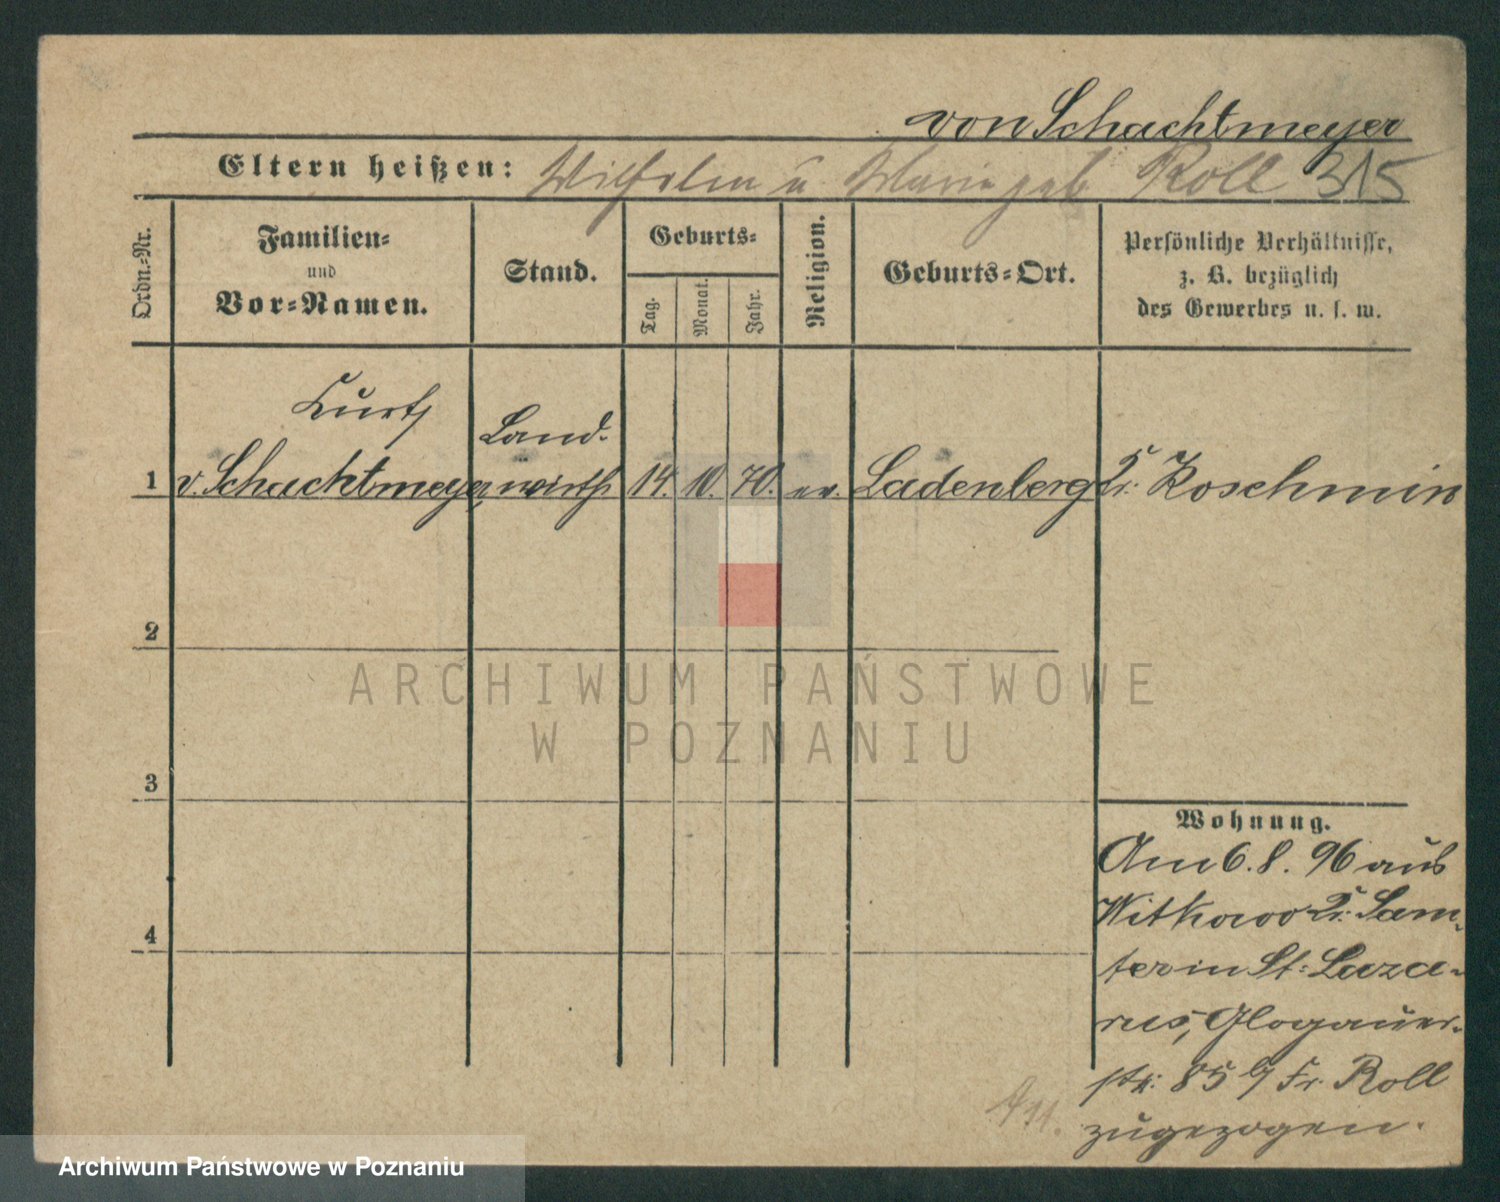 von Schachtmeyer
Eltern heißen: Wilhelm u. Marie geb. Roll 315
Ordn.-Nr.
Familien-
und
Vor-Namen.
Stand.
Geburts-
Tag.
Monat.
Jahr.
Religion.
Geburts-Ort.
Persönliche Verhältnisse,
z. B. bezüglich
des Gewerbes u. s. w.
Kurt
Land-
1 v. Schachtmeyer, wirth 14. 10. 70. ev. Ladenberg Kr. Koschmin
2
3
4
Wohnung.
Am 6. 8. 96 aus
Witkowo Kr. Sam-
ter in St: Laza-
rus, Glogauer-
str. 85 b/ Fr. Roll
zugezogen.
ARCHIWUM PAŃSTWOWE
W POZNANIU
Archiwum Państwowe w Poznaniu